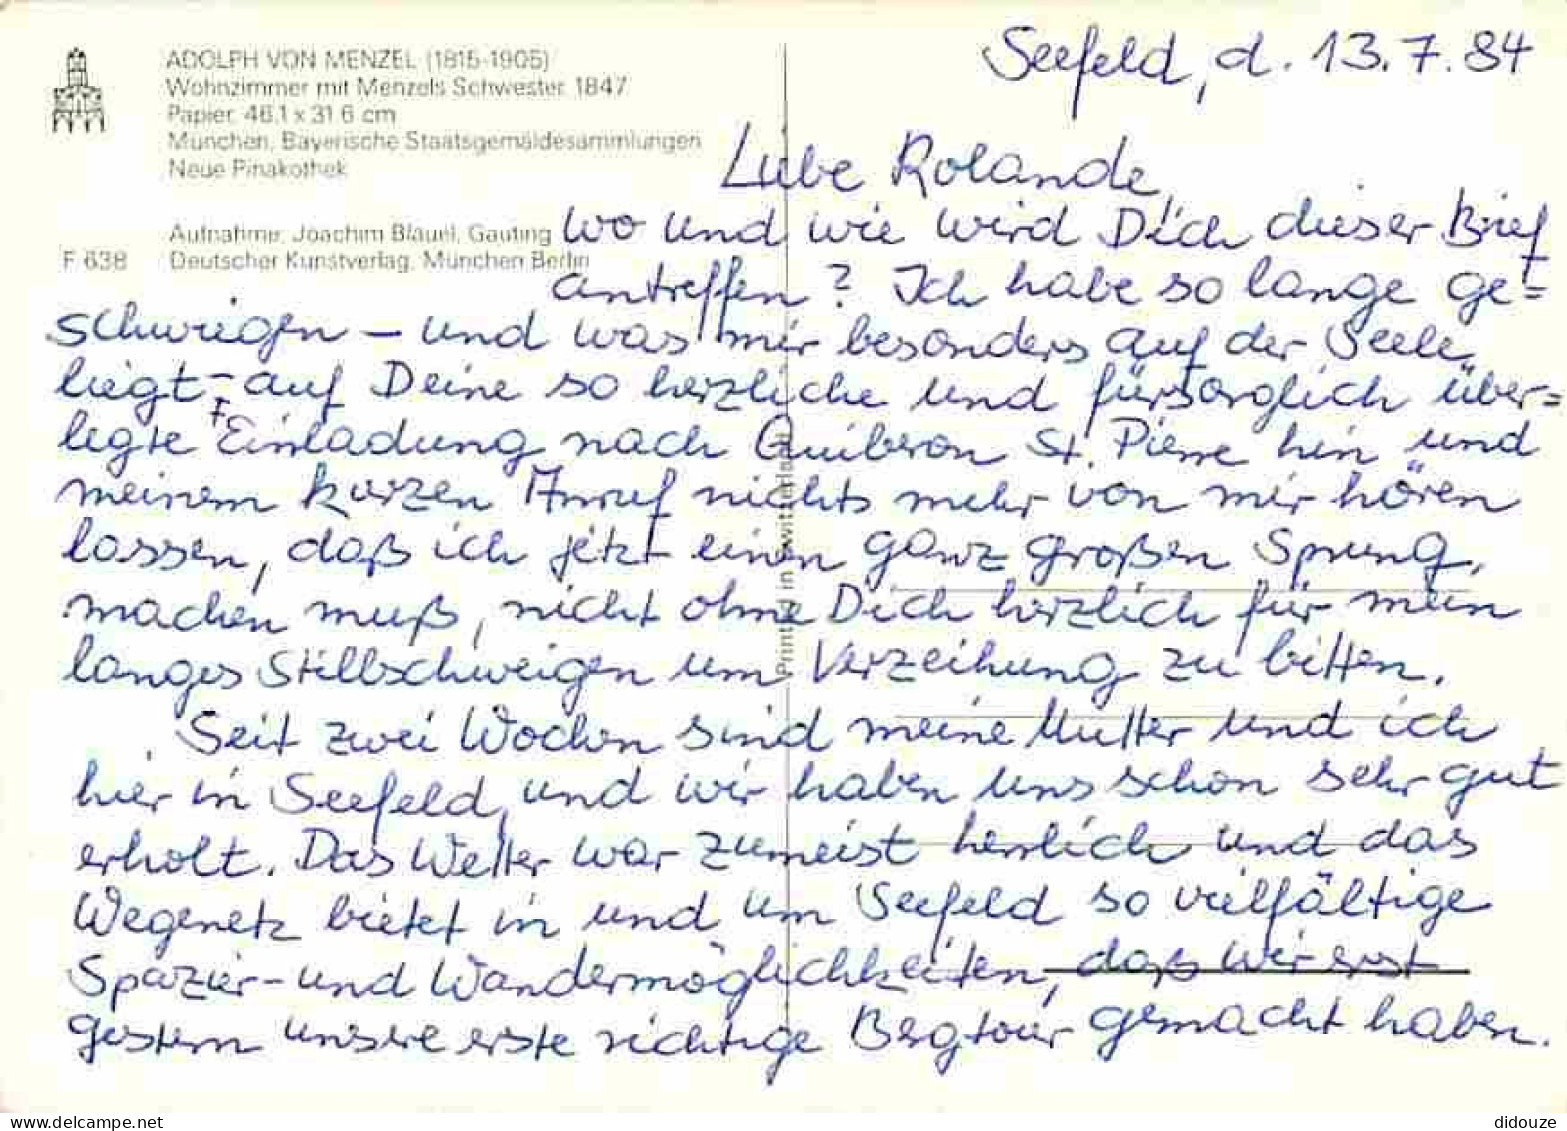 ADOLPH VON MENZEL (1815-1905)
Wohnzimmer mit Menzels Schwester 1847
Papier, 46,1 x 31,6 cm
München, Bayerische Staatsgemäldesammlungen
Neue Pinakothek
Aufnahme: Joachim Blauel, Gauting
F 638 Deutscher Kunstverlag, München Berlin
Printed in Switzerland
Seefeld, d. 13.7.84
Liebe Rolande,
wo und wie wird Dich dieser Brief
antreffen? Ich habe so lange ge=
schwiegen – und was mir besonders auf der Seele
liegt – auf Deine so herzliche und fürsorglich über=
legte Einladung nach Quiberon St. Pierre hin und
meinem kurzen Anruf nichts mehr von mir hören
lassen, daß ich jetzt einen ganz großen Sprung
machen muß, nicht ohne Dich herzlich für mein
langes Stillschweigen um Verzeihung zu bitten.
Seit zwei Wochen sind meine Mutter und ich
hier in Seefeld, und wir haben uns schon sehr gut
erholt. Das Wetter war zumeist herrlich und das
Wegenetz bietet in und um Seefeld so vielfältige
Spazier- und Wandermöglichkeiten, daß wir erst
gestern unsere erste richtige Bergtour gemacht haben.
didouze